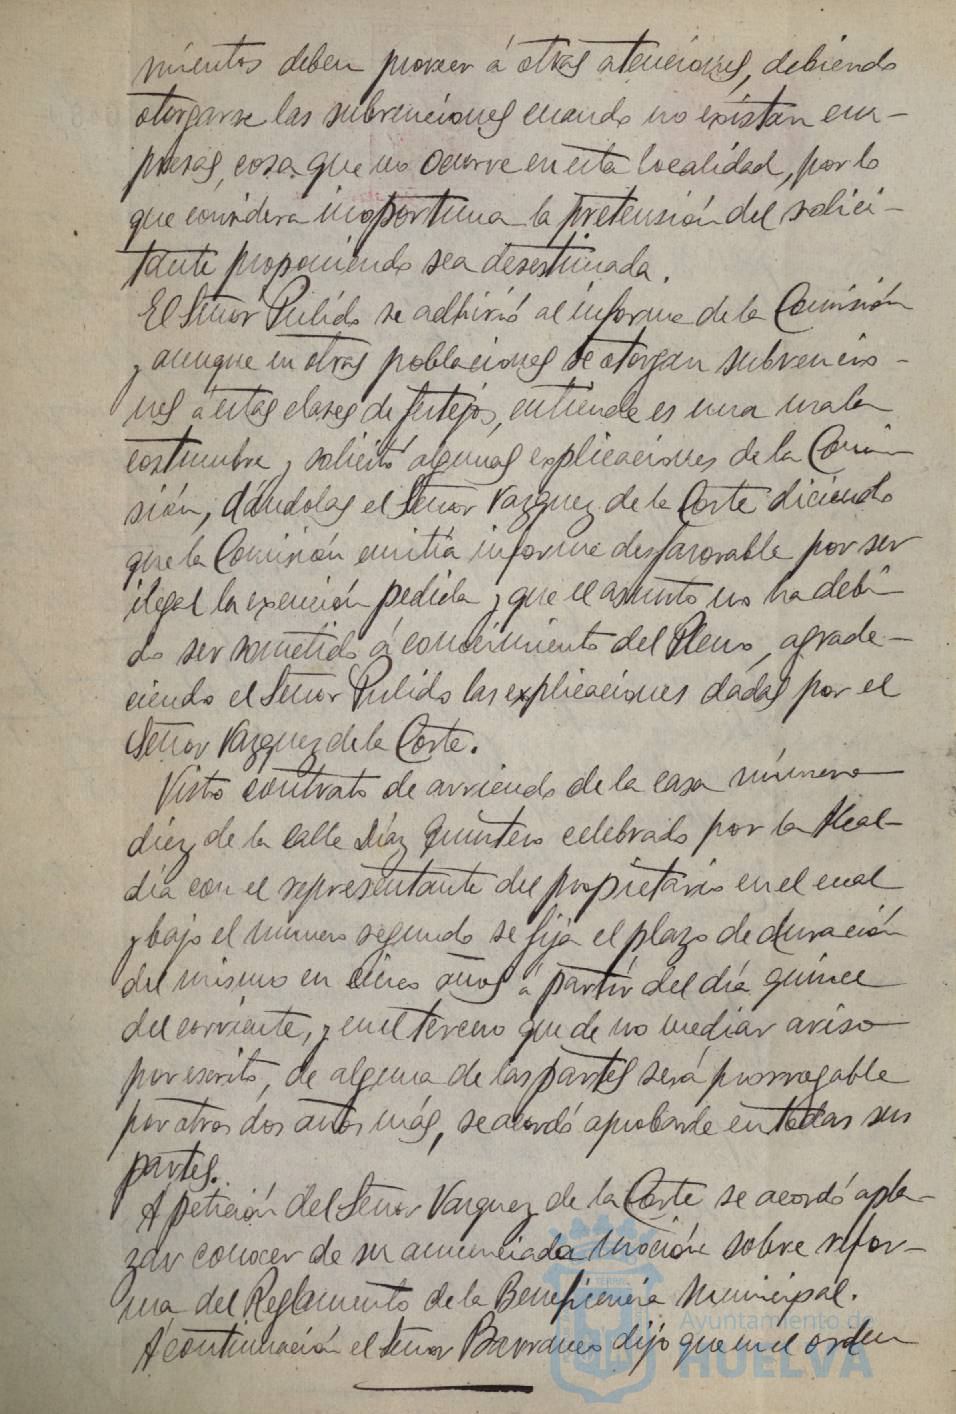 mientos deben proveer á otras atenciones, debiendo
otorgarse las subvenciones cuando no existan em-
presas, cosa que no ocurre en esta localidad, por lo
que considera inoportuna la pretensión del solici-
tante proponiendo sea desestimada.
El Señor Pulido se adhirió al informe de la Comisión
y aunque en otras poblaciones se otorgan subvencio-
nes á estas clases de festejos, entiende es una mala
costumbre y solicitó algunas explicaciones de la Comi-
sión, dándolas el Señor Vazquez de la Corte diciendo
que la Comisión emitía informe desfavorable por ser
ilegal la exención pedida y que el asunto no ha debi
do ser sometido á conocimiento del Pleno, agrade-
ciendo el Señor Pulido las explicaciones dadas por el
Señor Vazquez de la Corte.
Visto contrato de arriendo de la casa número
diez de la calle Díaz Quintero celebrado por la Alcal-
día con el representante del propietario en el cual
y bajo el número segundo se fija el plazo de duración
del mismo en cinco años á partir del día quince
del corriente, y en el tercero que de no mediar aviso
por escrito, de alguna de las partes será prorrogable
por otros dos años más, se acordó aprobarle en todas sus
partes.
A petición del Señor Vazquez de la Corte se acordó apla-
zar conocer de su anunciada moción sobre refor-
ma del Reglamento de la Beneficencia Municipal.
A continuación el Señor Barranco dijo que en el orden
Ayuntamiento de
HUELVA